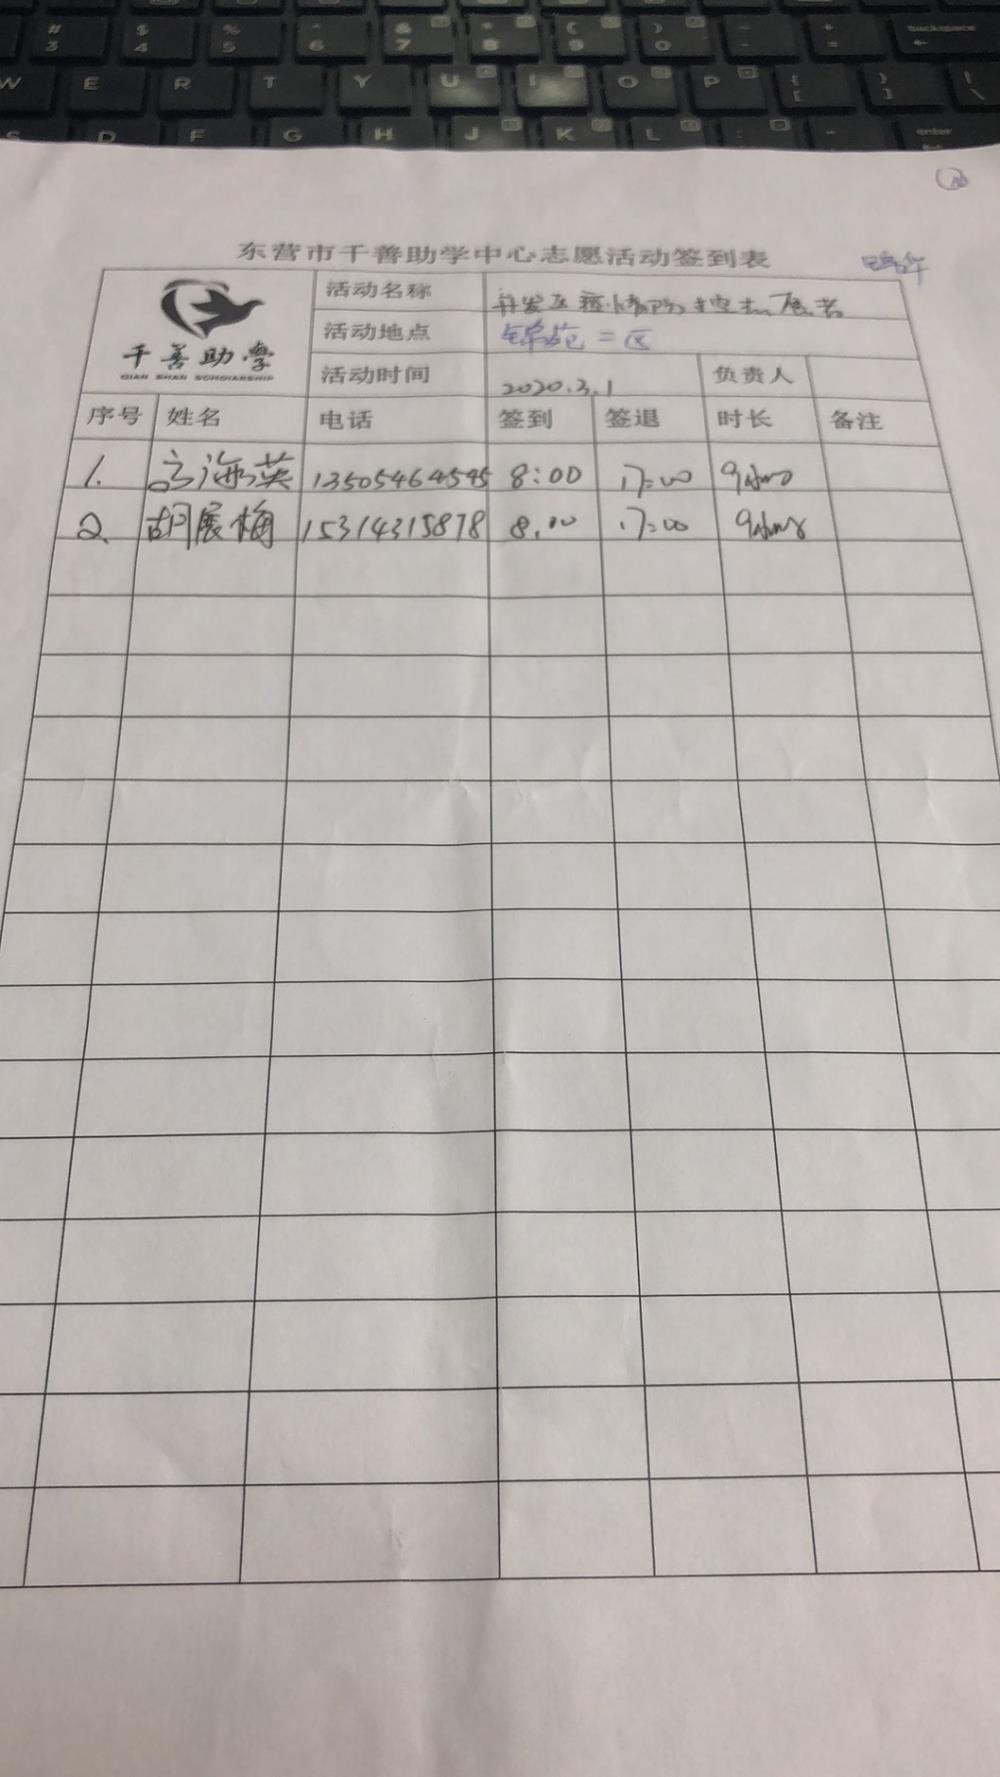 # 3 $ 4 % 5 ^ 6 & 7 * 8 ( 9 ) 0 - + = backspace
W E R T Y U I O P { [ } ] | \
S D F G H J K L : " enter
东营市千善助学中心志愿活动签到表
千善助学
QIAN SHAN SCHOLARSHIP
活动名称 开发区疫情防控志愿者
活动地点 锦苑二区
活动时间 2020.3.1 负责人
序号 姓名 电话 签到 签退 时长 备注
1. 海英 13505464545 8:00 17:00
2. 胡展梅 15314315878 8:00 17:00